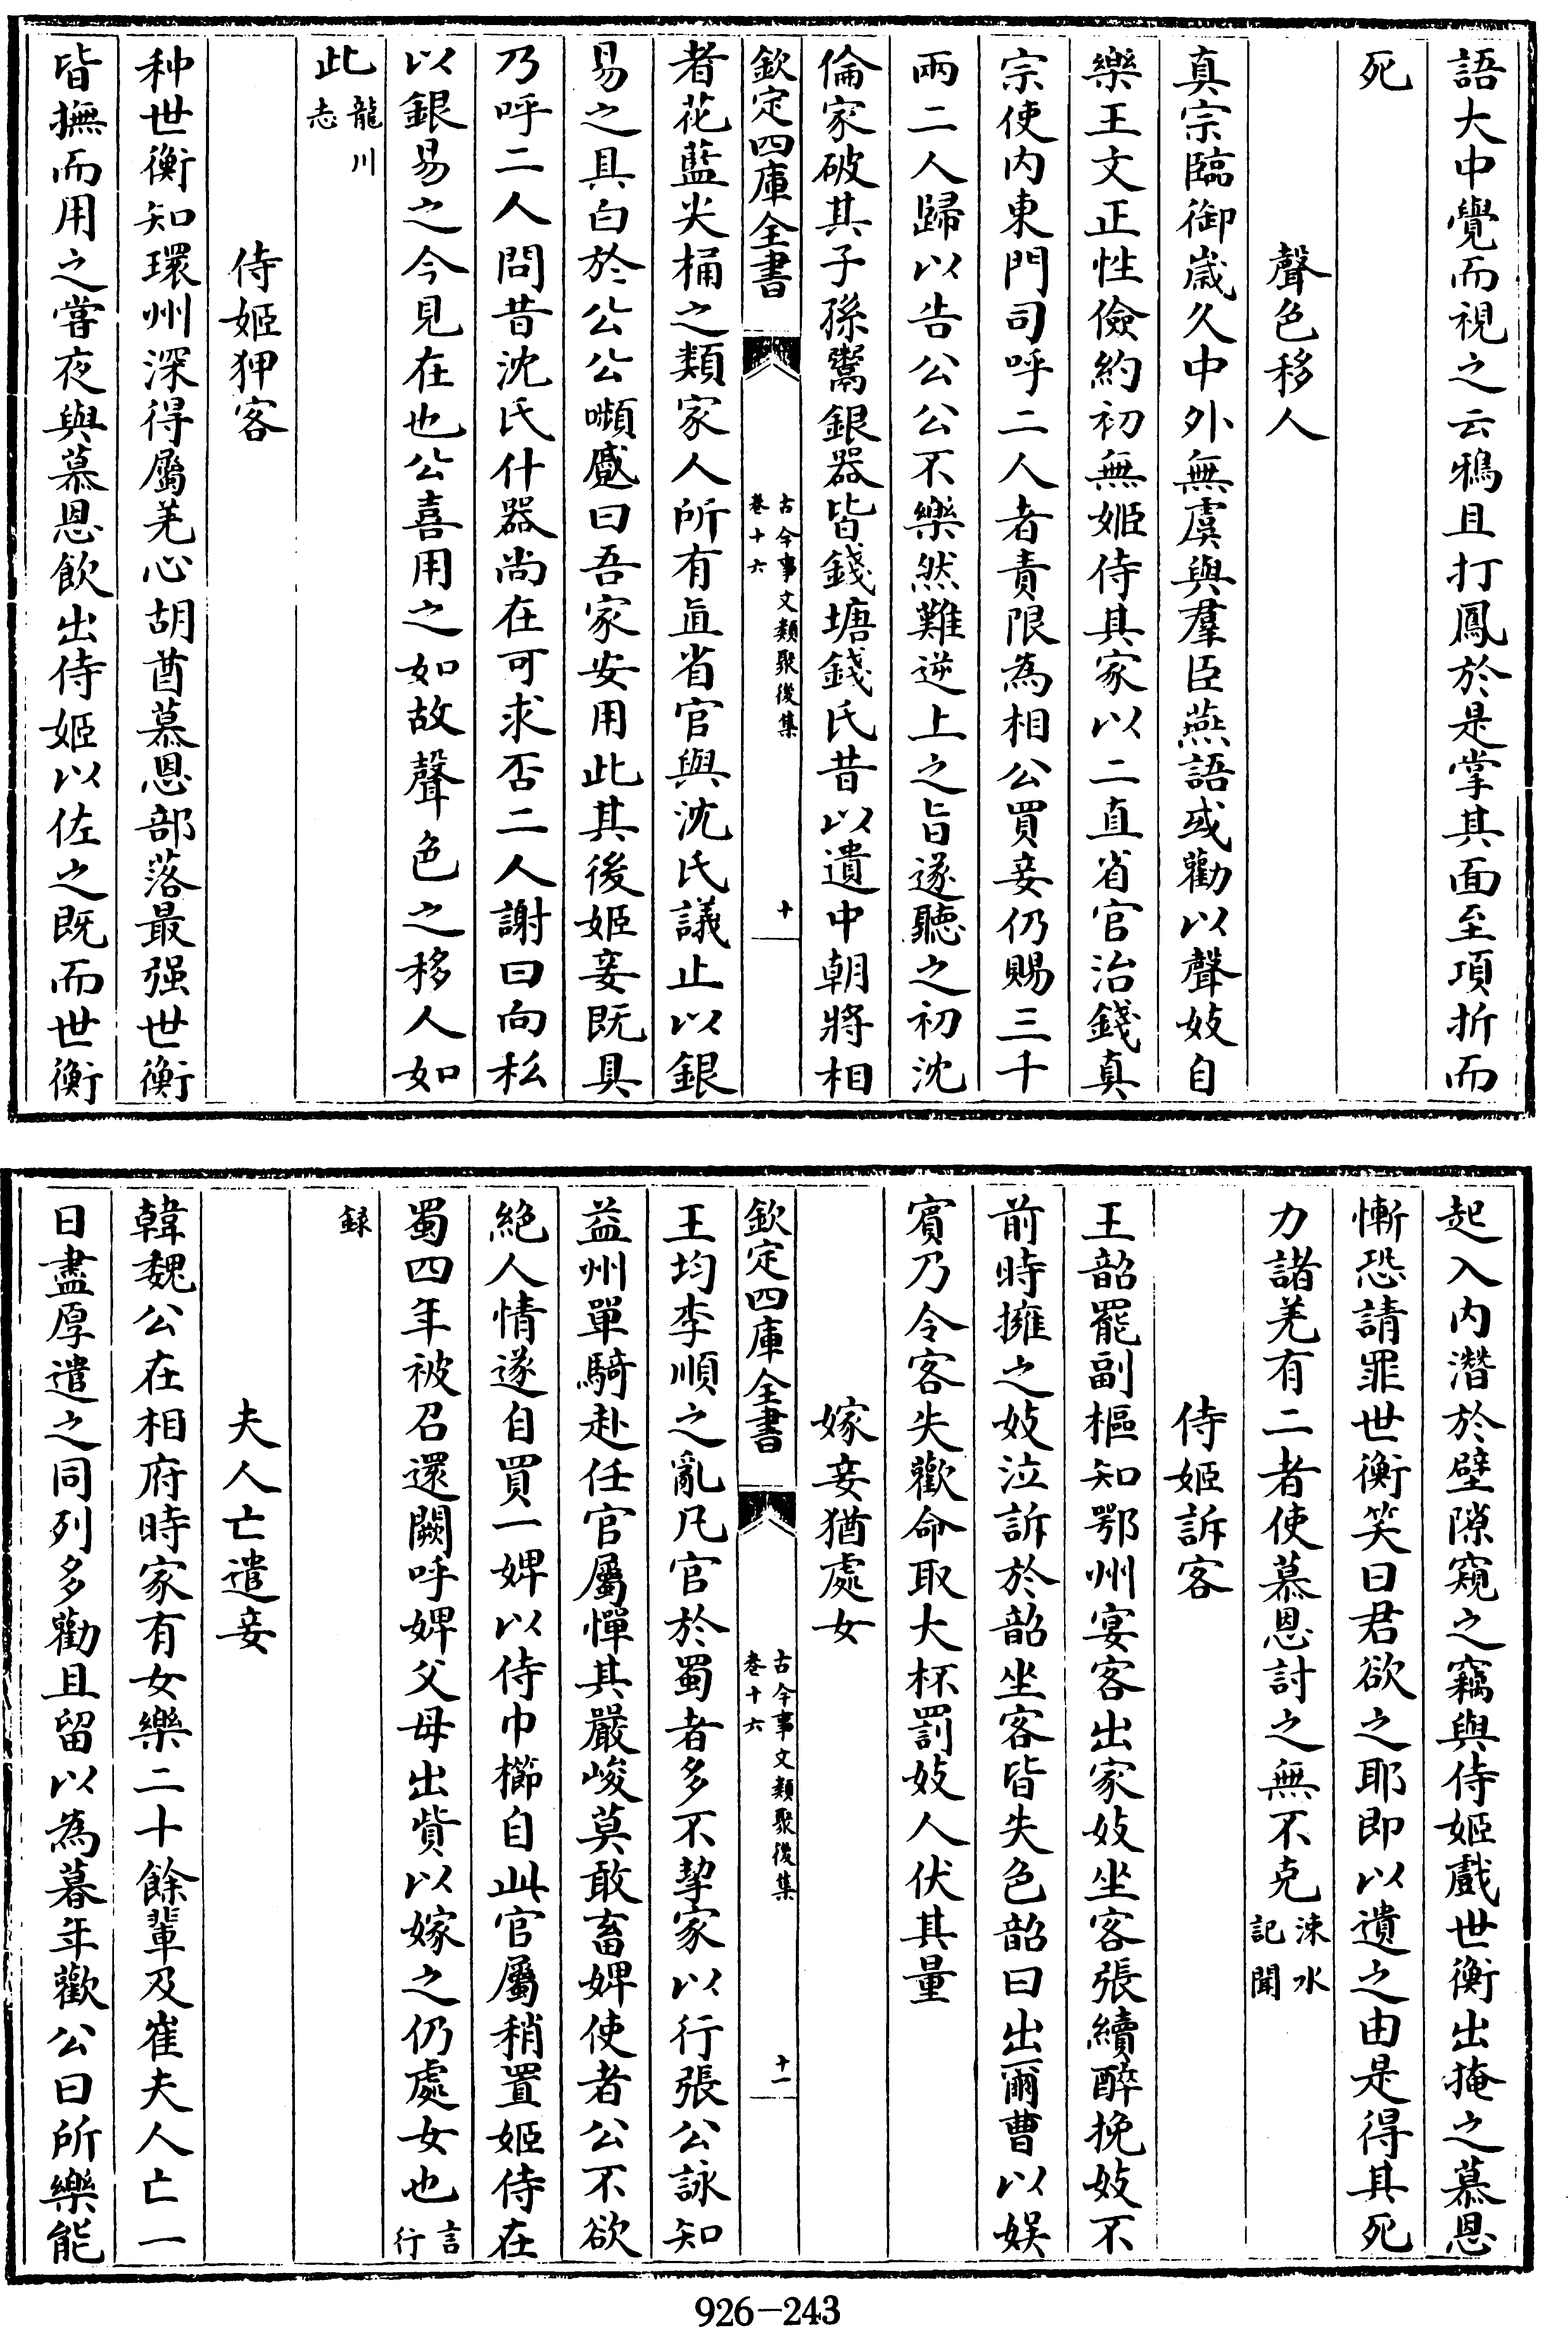 語大中覺而視之云鴉且打鳳於是掌其面至項折而
死
聲色移人
真宗臨御嵗久中外無虞與羣臣燕語或勸以聲妓自
樂王文正性儉約初無姬侍其家以二直省官治錢真
宗使内東門司呼二人者責限為相公買妾仍賜三千
兩二人歸以告公公不樂然難逆上之旨遂聽之初沈
倫家破其子孫鬻銀器皆錢塘錢氏昔以遺中朝將相
欽定四庫全書
古今事文類聚後集
卷十六
十
者花藍火桶之類家人所有直省官與沈氏議止以銀
易之具白於公公嚬蹙曰吾家安用此其後姬妾既具
乃呼二人問昔沈氏什器尚在可求否二人謝曰向私
以銀易之今見在也公喜用之如故聲色之移人如
此龍川志
侍姬狎客
种世衡知環州深得屬羌心胡酋慕恩部落最强世衡
皆撫而用之嘗夜與慕恩飲出侍姬以佐之既而世衡
起入内潛於壁隙窺之竊與侍姬戲世衡出掩之慕恩
慚恐請罪世衡笑曰君欲之耶即以遺之由是得其死
力諸羌有二者使慕恩討之無不克涑水記聞
侍姬訴客
王韶罷副樞知鄂州宴客出家妓坐客張續醉挽妓不
前時擁之妓泣訴於韶坐客皆失色韶曰出爾曹以娱
賓乃令客失歡命取大杯罰妓人伏其量
嫁妾猶處女
欽定四庫全書
古今事文類聚後集
卷十六
十一
王均李順之亂凡官於蜀者多不挈家以行張公詠知
益州單騎赴任官屬憚其嚴峻莫敢畜婢使者公不欲
絶人情遂自買一婢以侍巾櫛自此官屬稍置姬侍在
蜀四年被召還闕呼婢父母出貲以嫁之仍處女也言行
録
夫人亡遣妾
韓魏公在相府時家有女樂二十餘輩及崔夫人亡一
日盡厚遣之同列多勸且留以為暮年歡公曰所樂能
926-243